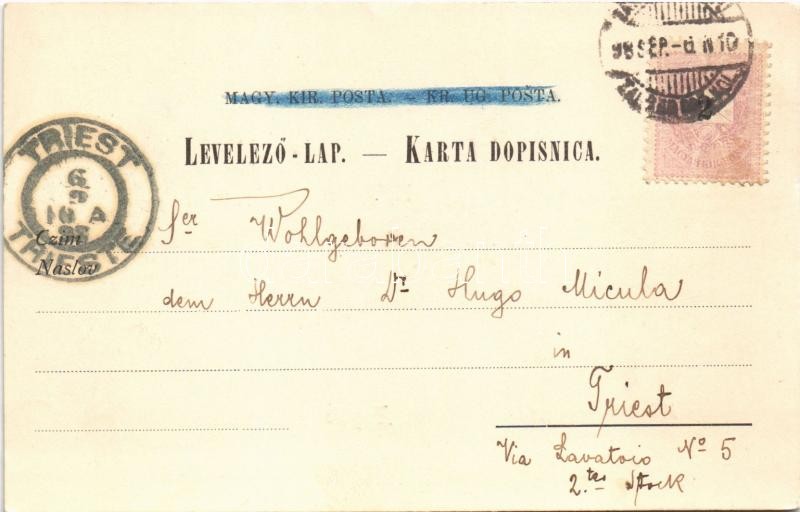 98 SEP. - 6. N 10
2
MAGY. KIR. POSTA. — KR. UG. POŠTA.
LEVELEZŐ - LAP. — KARTA DOPISNICA.
TRIEST
6
9
10 A
98
TRIESTE
Czím
Naslov
Sr Wohlgeboren
dem Herrn Dr Hugo Micula
in
Triest
Via Lavatoio No 5
2.tes Stock